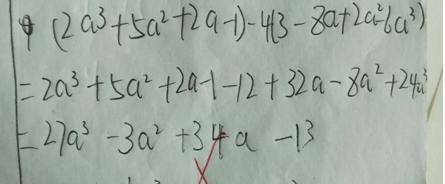 (2a³+5a²+2a-1)-4(3-8a+2a²-6a³)
=2a³+5a²+2a-1-12+32a-8a²+24a³
=27a³-3a²+34a-13